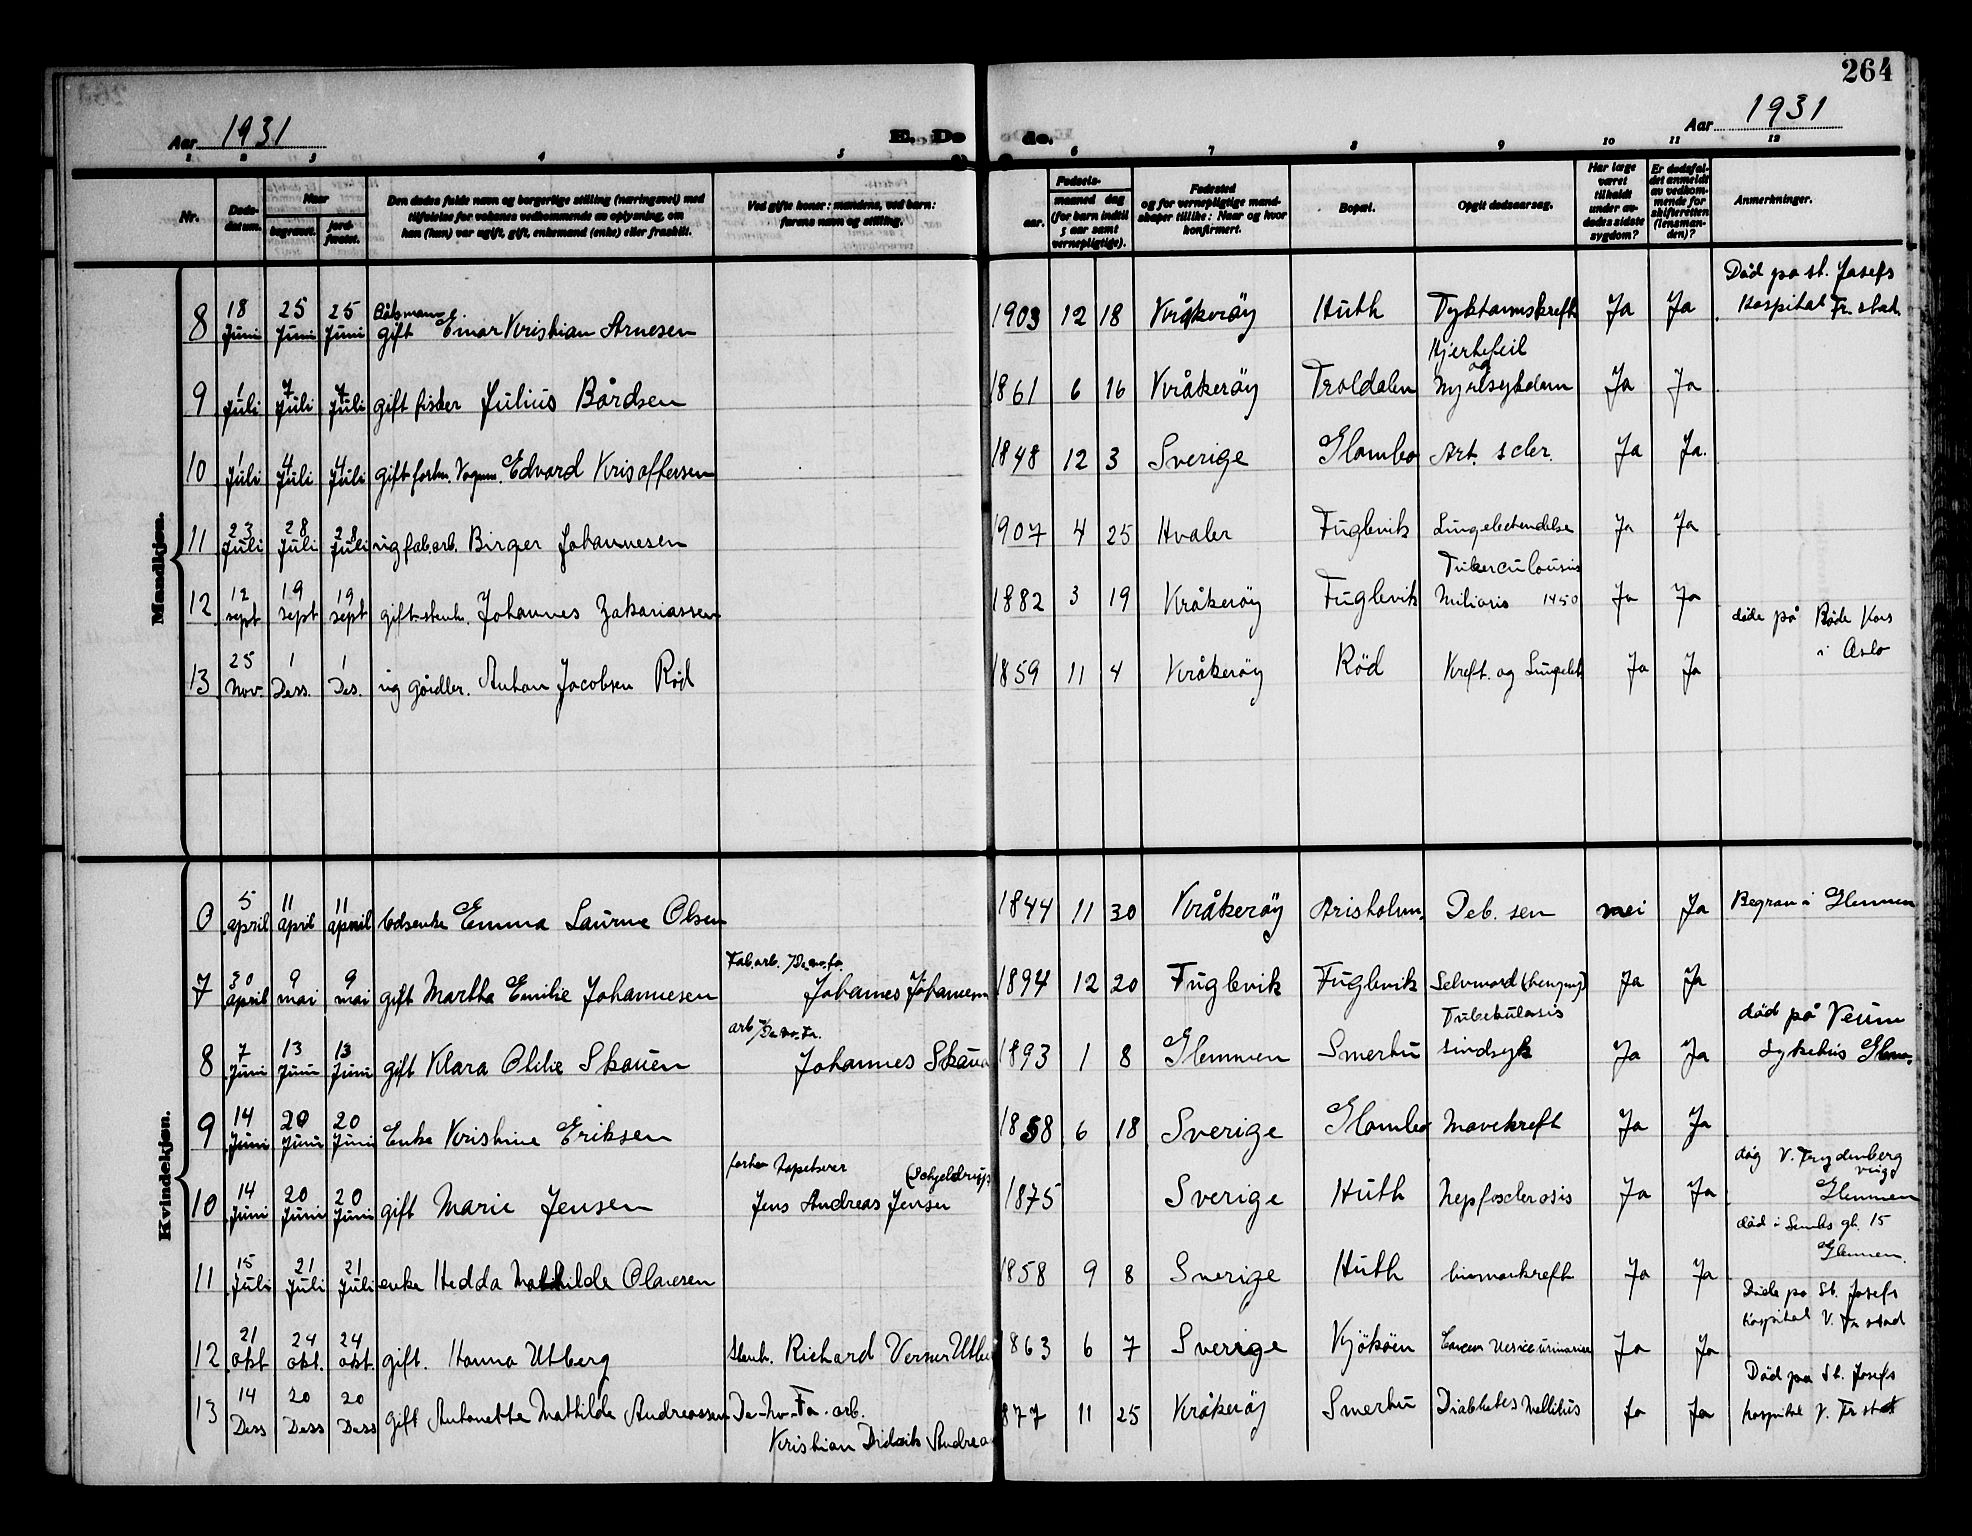 264
Aar 1931
E. Døde.
Aar 1931
1 2 3 4 5 6 7 8 9 10 11 12
Nr.
Døds-datum.
Naar
begravet.
jord-fæstet.
Den dødes fulde navn og borgerlige stilling (næringsvei) med
tilføielse for voksnes vedkommende av oplysning, om
han (hun) var ugift, gift, enkemand (enke) eller fraskilt.
Ved gifte koner: mandens, ved barn:
farens navn og stilling.
Fødsels-
aar.
maaned dag
(for barn indtil
5 aar samt
vernepligtige).
Fødested
og for vernepligtige mand-
skaper tillike: Naar og hvor
konfirmert.
Bopæl.
Opgit dødsaarsag.
Har læge
været
tilkaldt
under av-
dødes sidste
sygdom?
Er dødsfal-
det anmeldt
av vedkom-
mende for
skifteretten
(lensman-
den)?
Anmerkninger.
Mandkjøn.
8 18 Juni 25 Juni 25 Juni Båtsmann gift Einar Kristian Arnesen 1903 12 18 Kråkerøy Huth Tyktarmskreft Ja Ja Død på st. Josefs Hospital Fr.stad
9 1 Juli 7 Juli 7 Juli gift fisker Julius Bårdsen 1861 6 16 Kråkerøy Troldalen Hjertefeil og Nyresykdom Ja Ja
10 1 Juli 4 Juli 4 Juli gift forhv. Vognm. Edvard Krisoffersen 1848 12 3 Sverige Glombo Art. scler. Ja Ja.
11 23 Juli 28 Juli 28 Juli ug fab.arb. Birger Johannesen 1907 4 25 Hvaler Fuglevik Lungebetendelse Ja Ja
12 12 sept 19 sept 19 sept gift stenh. Johannes Zakariassen 1882 3 19 Kråkerøy Fuglevik Tuberculousis Miliaris 1450 Ja Ja
13 25 Nov. 1 Dess. 1 Des. ug gårdbr. Anton Jacobsen Rød 1859 11 4 Kråkerøy Rød Kreft. og Lungebet Ja Ja døde på Røde Kors i Oslo
Kvindekjøn.
6 5 april 11 april 11 april Emma Laurine Olsen 1844 11 30 Kråkerøy Arisholm. Deb. sen nei Ja Begrav i Glemmen
7 30 april 9 mai 9 mai gift Martha Emilie Johannesen Fab.arb. /De.no.fa. Johannes Johannesen 1894 12 20 Fuglevik Fuglevik Selvmord (hengning) Ja Ja
8 7 Juni 13 Juni 13 Juni gift Klara Otilie Skauen arb /De.no.Fa. Johannes Skauen 1893 1 8 Glemmen Smertu Tubekulosis sindsyk Ja Ja død på Veum Sykehus Glem.
9 14 Juni 20 Juni 20 Juni Enke Kristine Eriksen 1858 6 18 Sverige Glombo Mavekreft Ja Ja
10 14 Juni 20 Juni 20 Juni gift Marie Jensen forhv tapetserer (Schjeldrup) Jens Andreas Jensen 1875 Sverige Huth Nefrosclerosis Ja Ja død V. Trydenberg Glemmen
11 15 Juli 21 Juli 21 Juli enke Hedda Mathilde Olausen 1858 9 8 Sverige Huth livmorkreft Ja Ja død i gt. 15 Glemmen.
12 21 okt 24 okt. 24 okt. gift. Hanna Utberg Stenh. Richard Verner Utberg 1863 6 7 Sverige Kjøkøen Cancer Vesice urinariæ Ja Ja Døde på St. Josefs hospital V. Fr stad
13 14 Dess 20 Dess 20 Dess gift Antonette Mathilde Andreassen De-No-Fa. arb. Kristian Didrik Andrea 1877 11 25 Kråkerøy Smertu Diabhetes Mellitus Ja Ja Død på St. Josefs hospital V. Fr stad